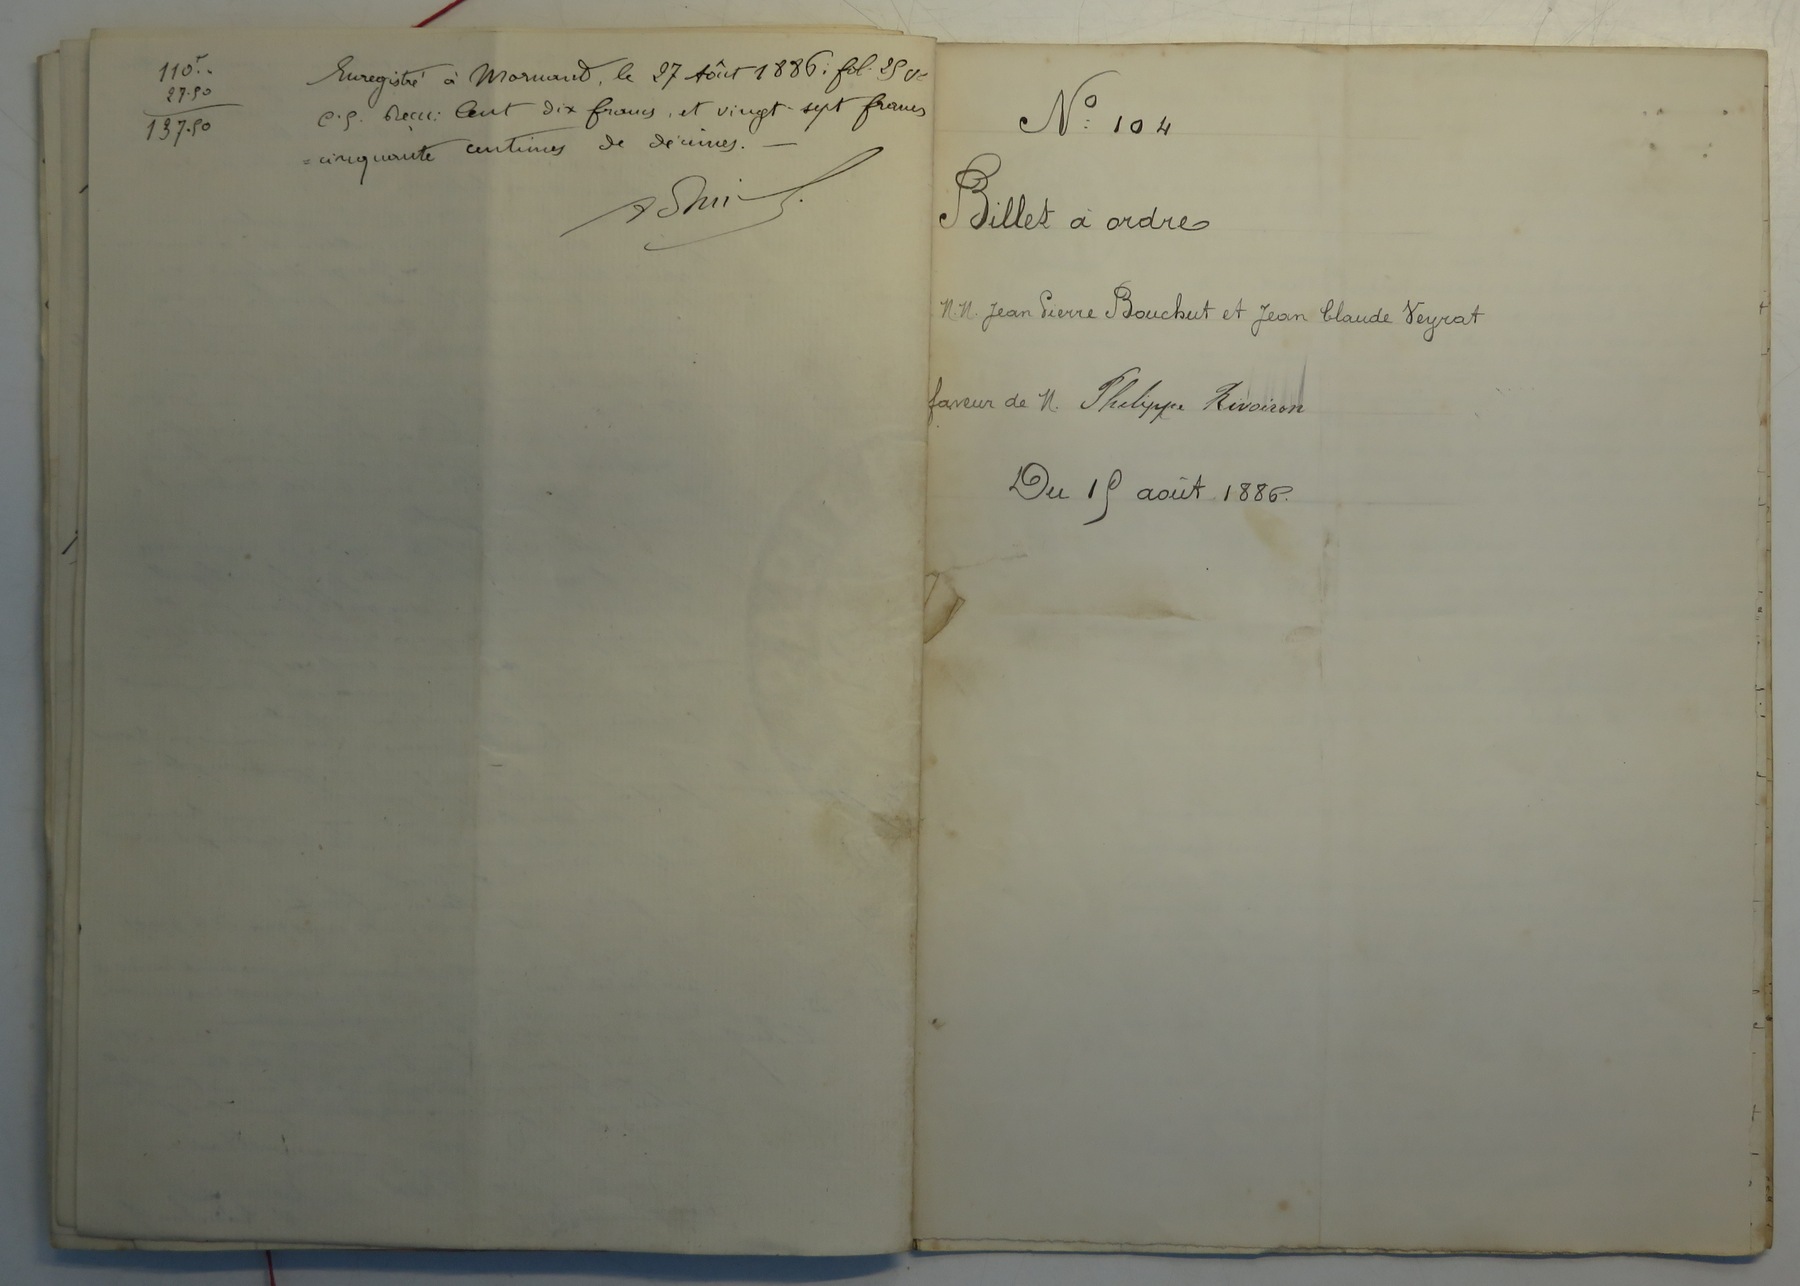 110f..
27.50
137.50
Enregistré à Mornant, le 27 Août 1886, fol. 25 Vo
c.5. Reçu: Cent dix francs, et vingt-sept francs
=cinquante centimes de décimes. —
No: 104
Billet à ordre
M.M. Jean Pierre Bouchut et Jean Claude Veyrat
faveur de M. Philippe Rivoiron
Du 15 août 1886.